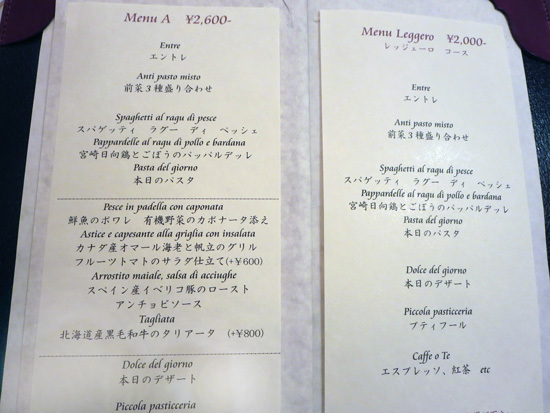 Menu A ¥2,600-
Entre
エントレ
Anti pasto misto
前菜3種盛り合わせ
Spaghetti al ragu di pesce
スパゲッティ ラグー ディ ペッシェ
Pappardelle al ragu di pollo e bardana
宮崎日向鶏とごぼうのパッパルデッレ
Pasta del giorno
本日のパスタ
Pesce in padella con caponata
鮮魚のポワレ 有機野菜のカポナータ添え
Astice e capesante alla griglia con insalata
カナダ産オマール海老と帆立のグリル
フルーツトマトのサラダ仕立て(+¥600)
Arrostito maiale, salsa di acciughe
スペイン産イベリコ豚のロースト
アンチョビソース
Tagliata
北海道産黒毛和牛のタリアータ (+¥800)
Dolce del giorno
本日のデザート
Piccola pasticceria
Menu Leggero ¥2,000-
レッジェーロ コース
Entre
エントレ
Anti pasto misto
前菜3種盛り合わせ
Spaghetti al ragu di pesce
スパゲッティ ラグー ディ ペッシェ
Pappardelle al ragu di pollo e bardana
宮崎日向鶏とごぼうのパッパルデッレ
Pasta del giorno
本日のパスタ
Dolce del giorno
本日のデザート
Piccola pasticceria
プティフール
Caffe o Te
エスプレッソ、紅茶 etc